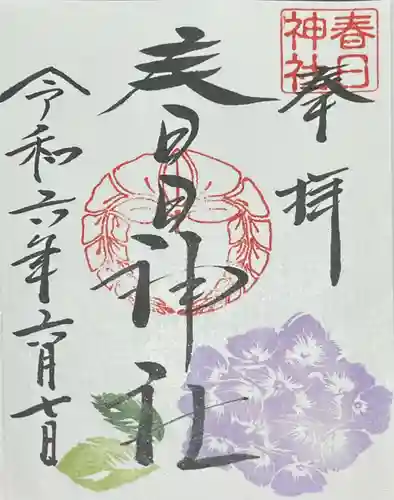 奉拝
春日神社
春日神社
令和六年六月七日